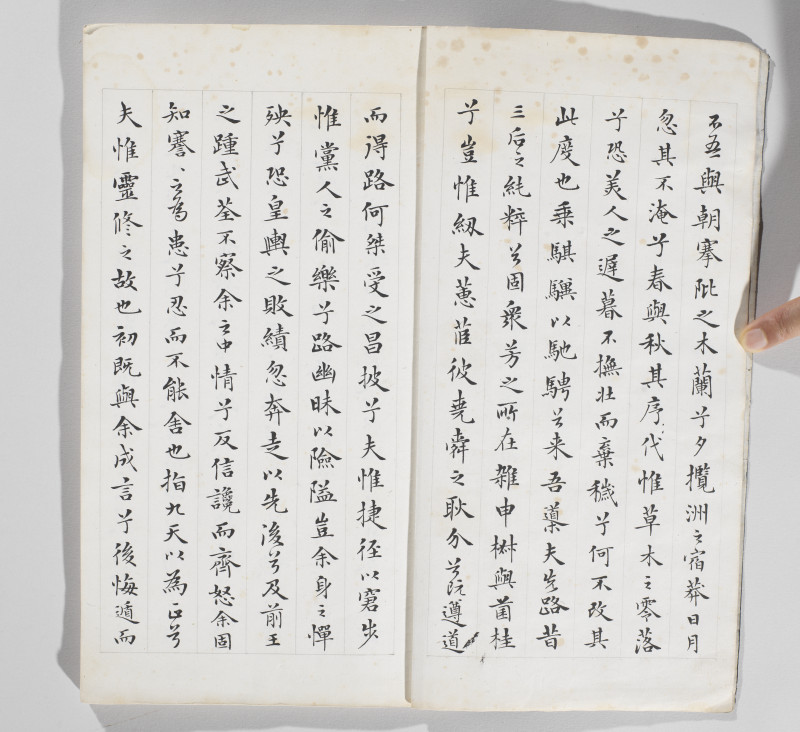 不吾與朝搴阰之木蘭兮夕攬洲之宿莽日月
忽其不淹兮春與秋其序代惟草木之零落
兮恐美人之遲暮不撫壯而棄穢兮何不改其
此度也乘騏驥以馳騁兮来吾導夫先路昔
三后之純粹兮固衆芳之所在雜申椒與菌桂
兮豈惟紉夫蕙茝彼堯舜之耿介兮既遵道
而得路何桀受之昌披兮夫惟捷徑以窘步
惟黨人之偷樂兮路幽昧以險隘豈余身之憚
殃兮恐皇輿之敗績忽奔走以先後兮及前王
之踵武荃不察余之中情兮反信讒而齊怒余固
知謇〻之為患兮忍而不能舍也指九天以為正兮
夫惟靈修之故也初既與余成言兮後悔遁而